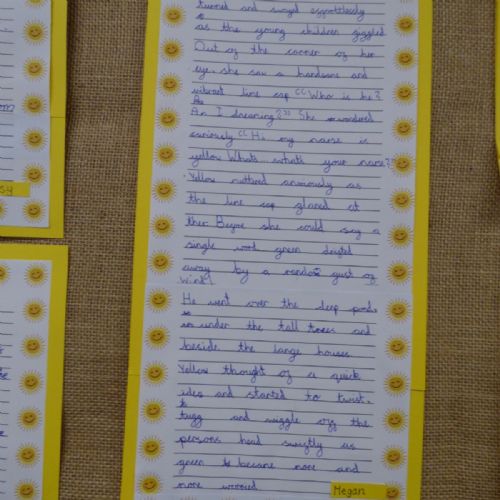 turned and swayed effortlessly
as the young children giggled.
Out of the corner of her
eye, she saw a handsome and
vibrant lime cap "Who is he?
Am I dreaming?" She wondered
curiously "Hi my name is
yellow Whats whats your name?"
Yellow muttered anxiously as
the lime cap glared at
ther. Before she could say a
single word green drifted
away by a random gust of
wind!
He went over the deep pond,
under the tall trees and
beside the large houses
Yellow thought of a quick
idea and started to twist,
tugg and wiggle off the
persons head swiftly as
green became more and
more worried
Megan
sy